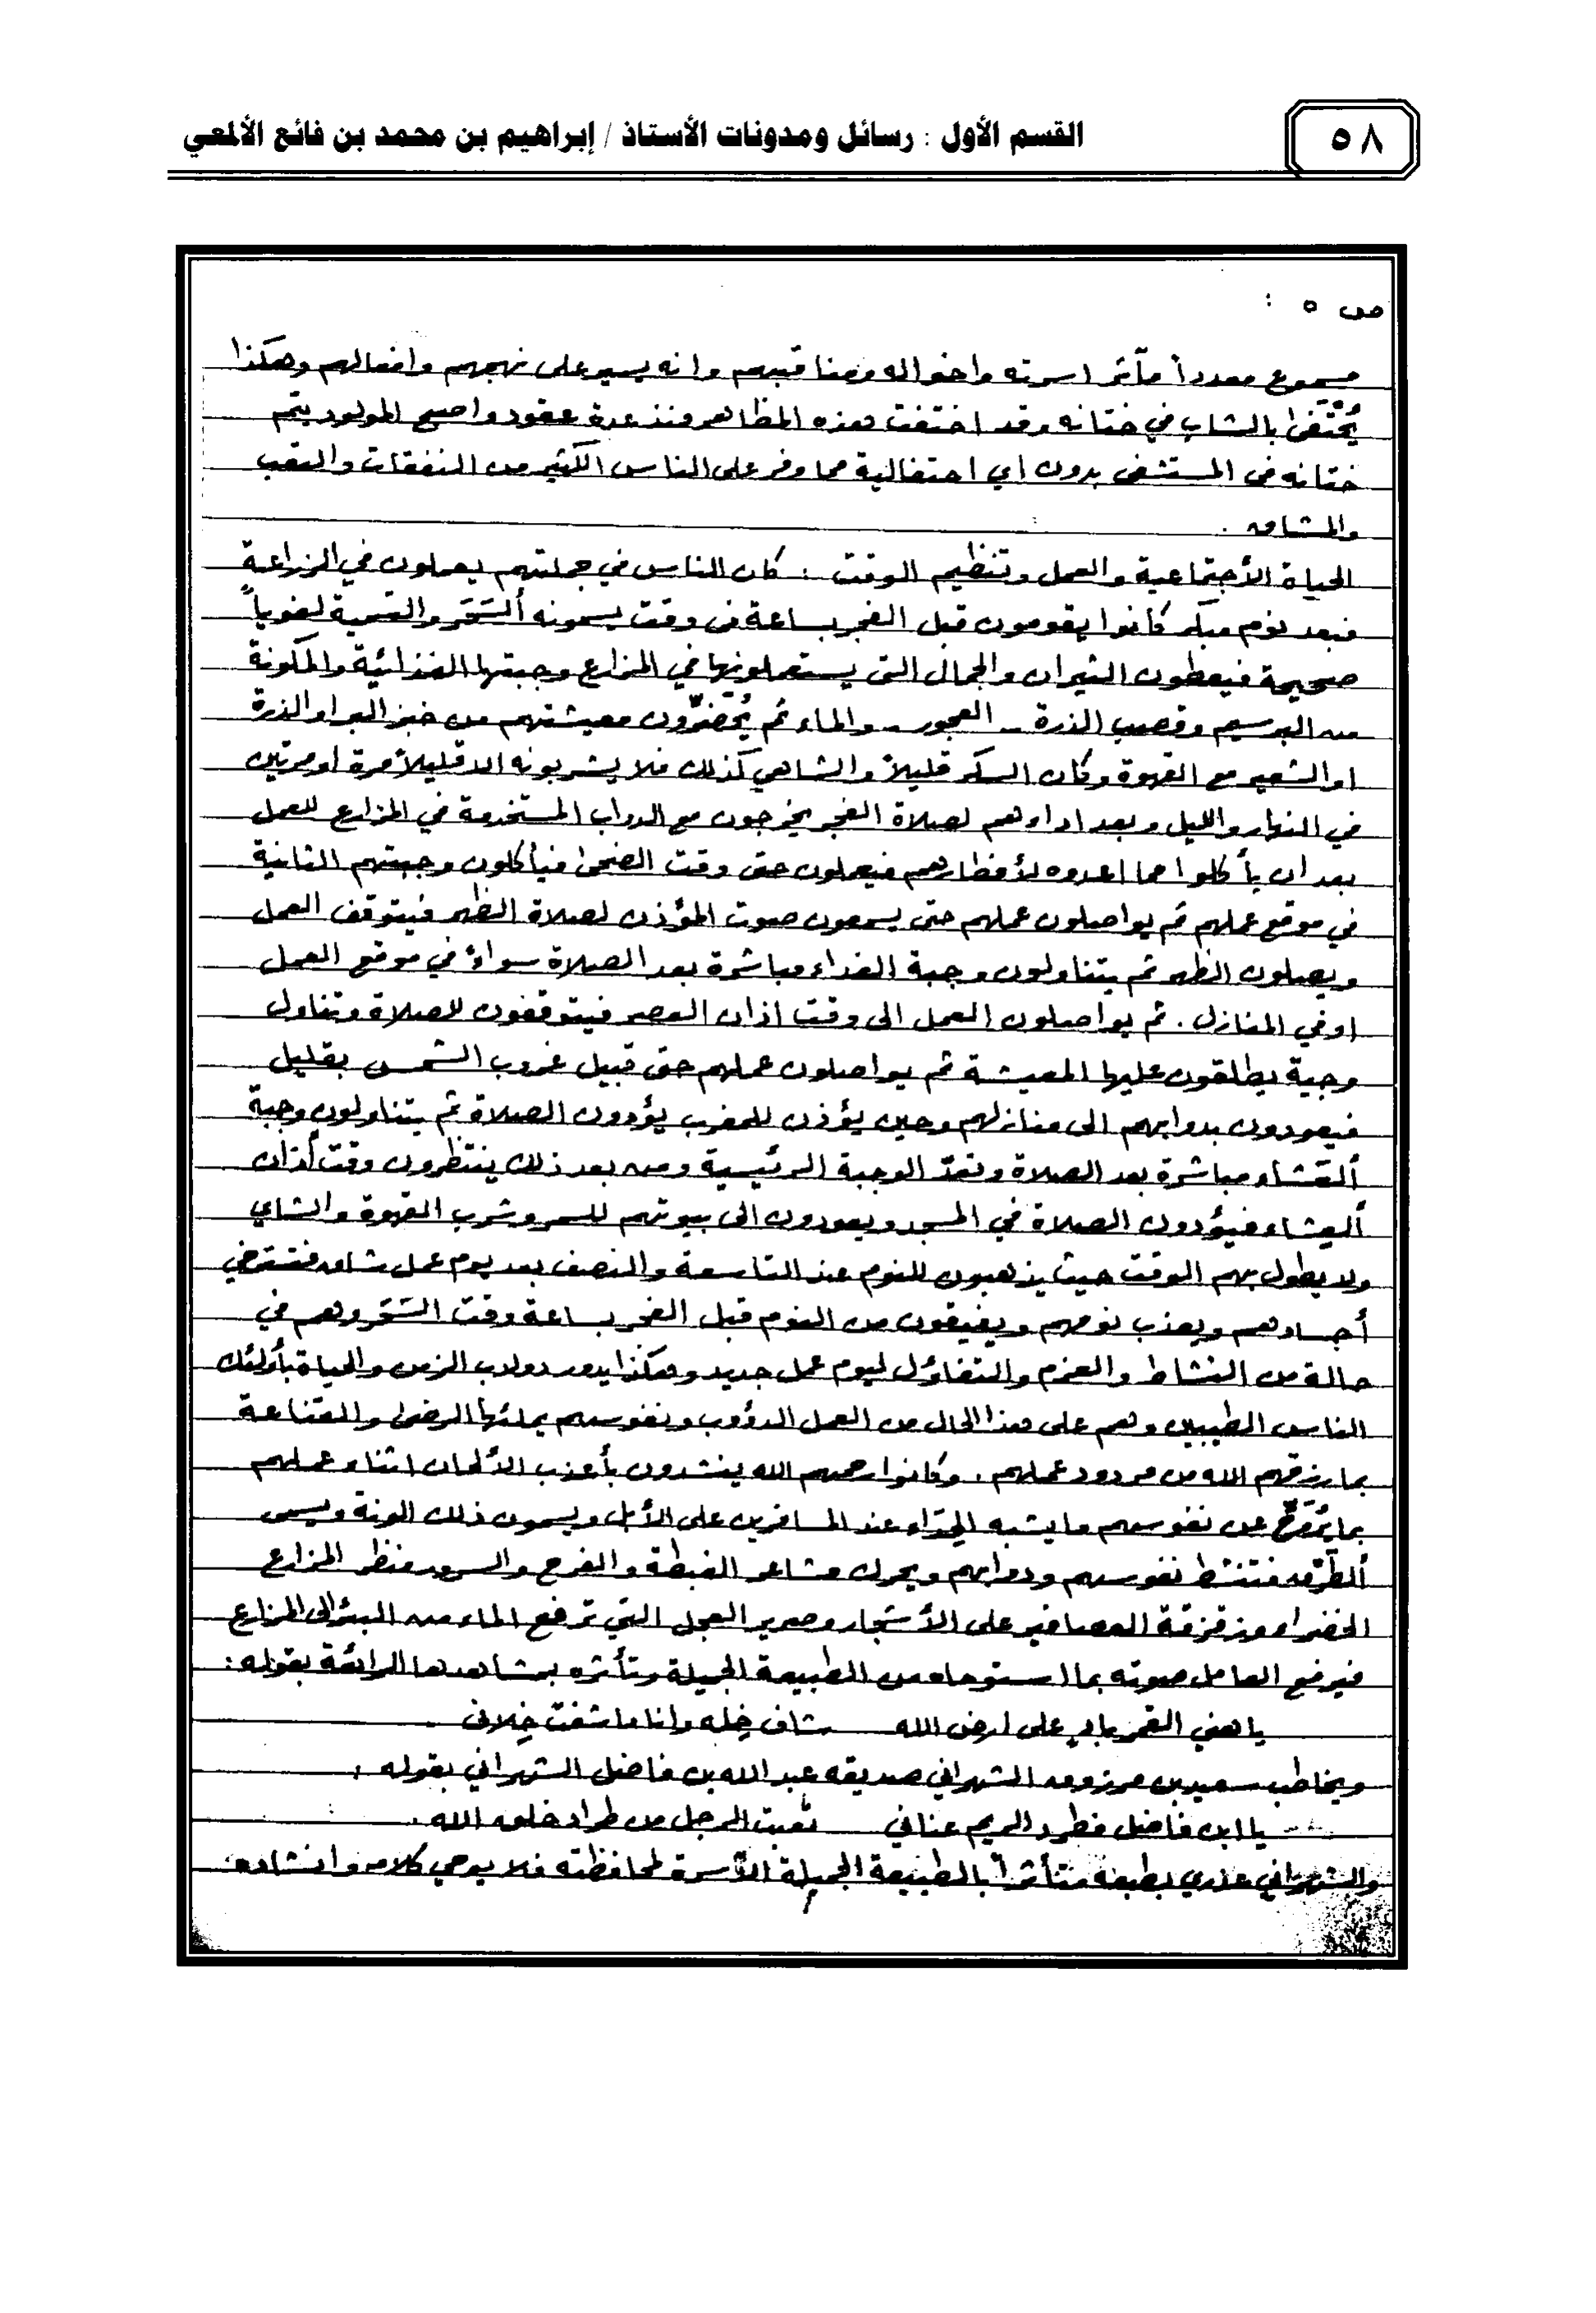 ٥٨
القسم الأول : رسائل ومدونات الأستاذ / إبراهيم بن محمد بن فائع الألمعي
ص ٥ :
مسموع معدداً مآثر اسرته واخواله ومناقبهم وانه يسير على نهجهم وافعالهم وهكذا
يُحْتَفَىٰ بالشاب في ختانه وقد اختفت هذه المظاهر منذ عدة عقود واصبح المولود يتم
ختانه في المستشفى بدون اي احتفالية مما وفر على الناس الكثير من النفقات والتعب
والمشاق .
الحياة الأجتماعية والعمل وتنظيم الوقت : كان الناس في جملتهم يعملون في الزراعة
فبعد نوم مبكر كانوا يقومون قبل الفجر بساعة في وقت يسمونه ألسَّحَر والتسمية لغوياً
صحيحة فيعطون الثيران والجمال التي يستعملونها في المزارع وجبتها الغذائية والمكونة
من البرسيم وقصب الذرة - العجور - والماء ثم يُحَضِّرُون معيشتهم من خبز البر او الذرة
او الشعير مع القهوة وكان السكر قليلاً والشاهي كذلك فلا يشربونه الا قليلاً مرة او مرتين
في النهار والليل وبعد اداءهم لصلاة الفجر يخرجون مع الدواب المستخدمة في المزارع للعمل
بعد ان يأكلوا مما اعدوه لأفطارهم فيعملون حتى وقت الضحى فيأكلون وجبتهم الثانية
في موقع عملهم ثم يواصلون عملهم حتى يسمعون صوت المؤذن لصلاة الظهر فيتوقف العمل
ويصلون الظهر ثم يتناولون وجبة الغداء مباشرة بعد الصلاة سواءً في موقع العمل
اوفي المنازل . ثم يواصلون العمل الى وقت اذان العصر فيتوقفون للصلاة وتناول
وجبة يطلقون عليها المعيشة ثم يواصلون عملهم حتى قبيل غروب الشمس بقليل
فيعودون بدوابهم الى منازلهم وحين يؤذن للمغرب يؤدون الصلاة ثم يتناولون وجبة
ألعَشاء مباشرة بعد الصلاة وتعدّ الوجبة الرئيسية ومن بعد ذلك ينتظرون وقت أذان
ألعِشاء فيؤدون الصلاة في المسجد ويعودون الى بيوتهم للسمر وشرب القهوة والشاي
ولا يطول بهم الوقت حيث يذهبون للنوم عند التاسعة والنصف بعد يوم عمل شاق فتسترخي
أجسادهم ويعذب نومهم ويفيقون من النوم قبل الفجر بساعة وقت السَّحَر وهم في
حالة من النشاط والعزم والتفاؤل ليوم عمل جديد وهكذا يدور دولاب الزمن والحياة بأولئك
الناس الطيبين وهم على هذا الحال من العمل الدؤوب ونفوسهم يملئها الرضى والقناعة
بما رزقهم الله من مردود عملهم . وكانوا رحمهم الله ينشدون بأعذب الألحان اثناء عملهم
بما يُرَوِّحُ عن نفوسهم ما يشبه الحِدَاء عند المسافرين على الأبل ويسمون ذلك الونة ويسمى
ألطَّرْق فتنشط نفوسهم ودوابهم ويحرك مشاعر الغبطة والفرح والسرور منظر المزارع
الخضراء وزقزقة العصافير على الأشجار وصرير العجل التي ترفع الماء من البئر الى المزارع
فيرفع العامل صوته بما استوحاه من الطبيعة الجميلة وتأثره بمشاهدها الرائعة بقوله :
يا هني القمر بادٍ على ارض الله شاف خِله وانا ما شفت خِلاني .
ويخاطب سعيد بن مرزوق الشهراني صديقه عبد الله بن فاضل الشهراني بقوله :
يا ابن فاضل فطرد الريم عناني تعبت الرجل من طراد خلق الله .
والشهراني عذري بطبعه متأثراً بالطبيعة الجميلة الآسرة لمحافظته فلا يوحي كلامه وانشاده